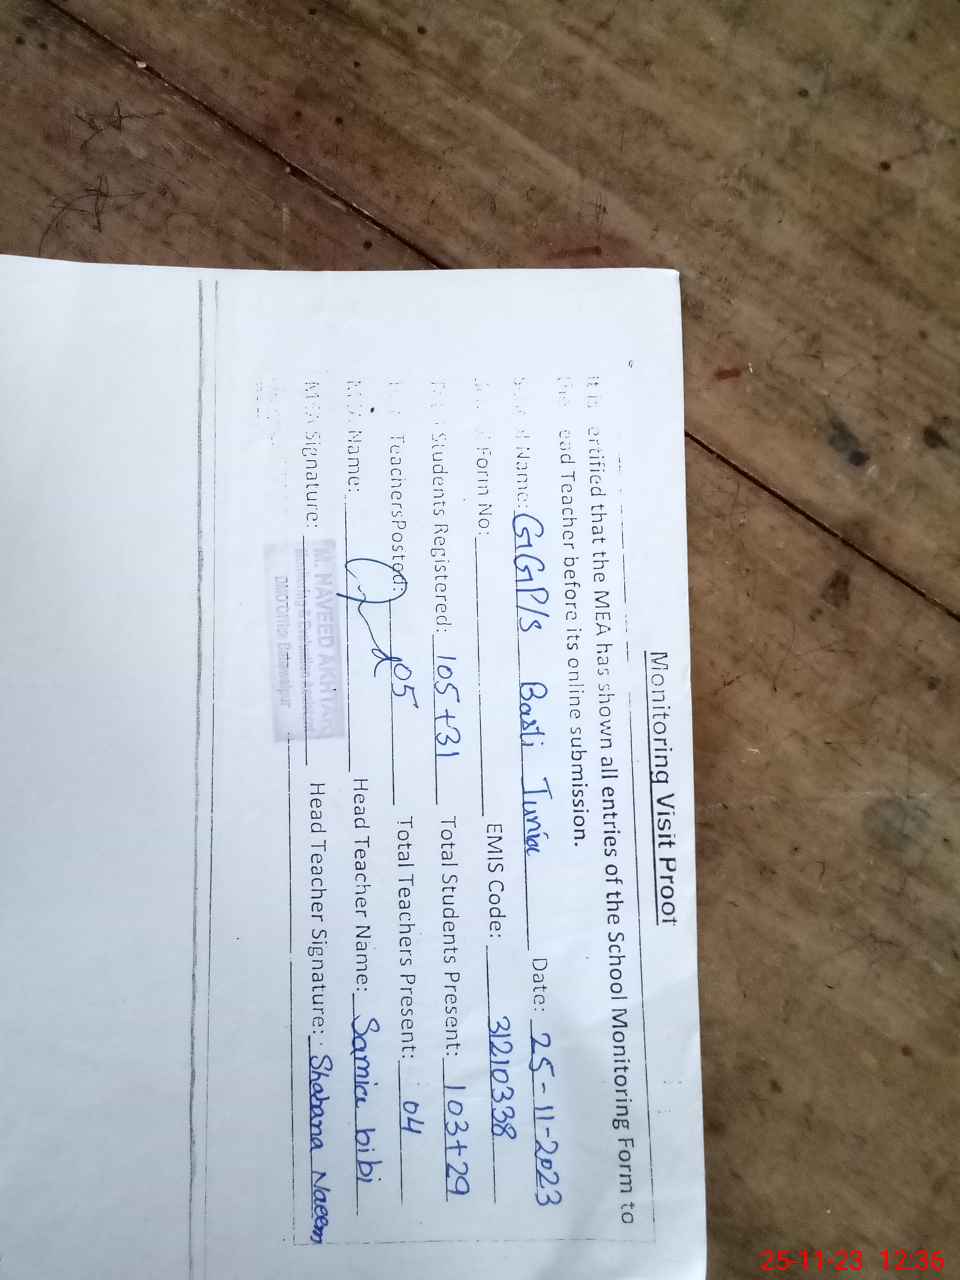 Monitoring Visit Proof
It is certified that the MEA has shown all entries of the School Monitoring Form to
the Head Teacher before its online submission.
School Name: GGP/S Basti Date: 25-11-2023
Form No: EMIS Code: 31210338
Students Registered: 105+31 Total Students Present: 103+29
Teachers Posted: 05 Total Teachers Present: 04
MEA Name: Head Teacher Name: Samia bibi
MEA Signature: Head Teacher Signature: Shabana Naeem
M. NAVEED AKHTAR
Monitoring & Evaluation Assistant
DMO Office Bahawalpur
25-11-23 12:36